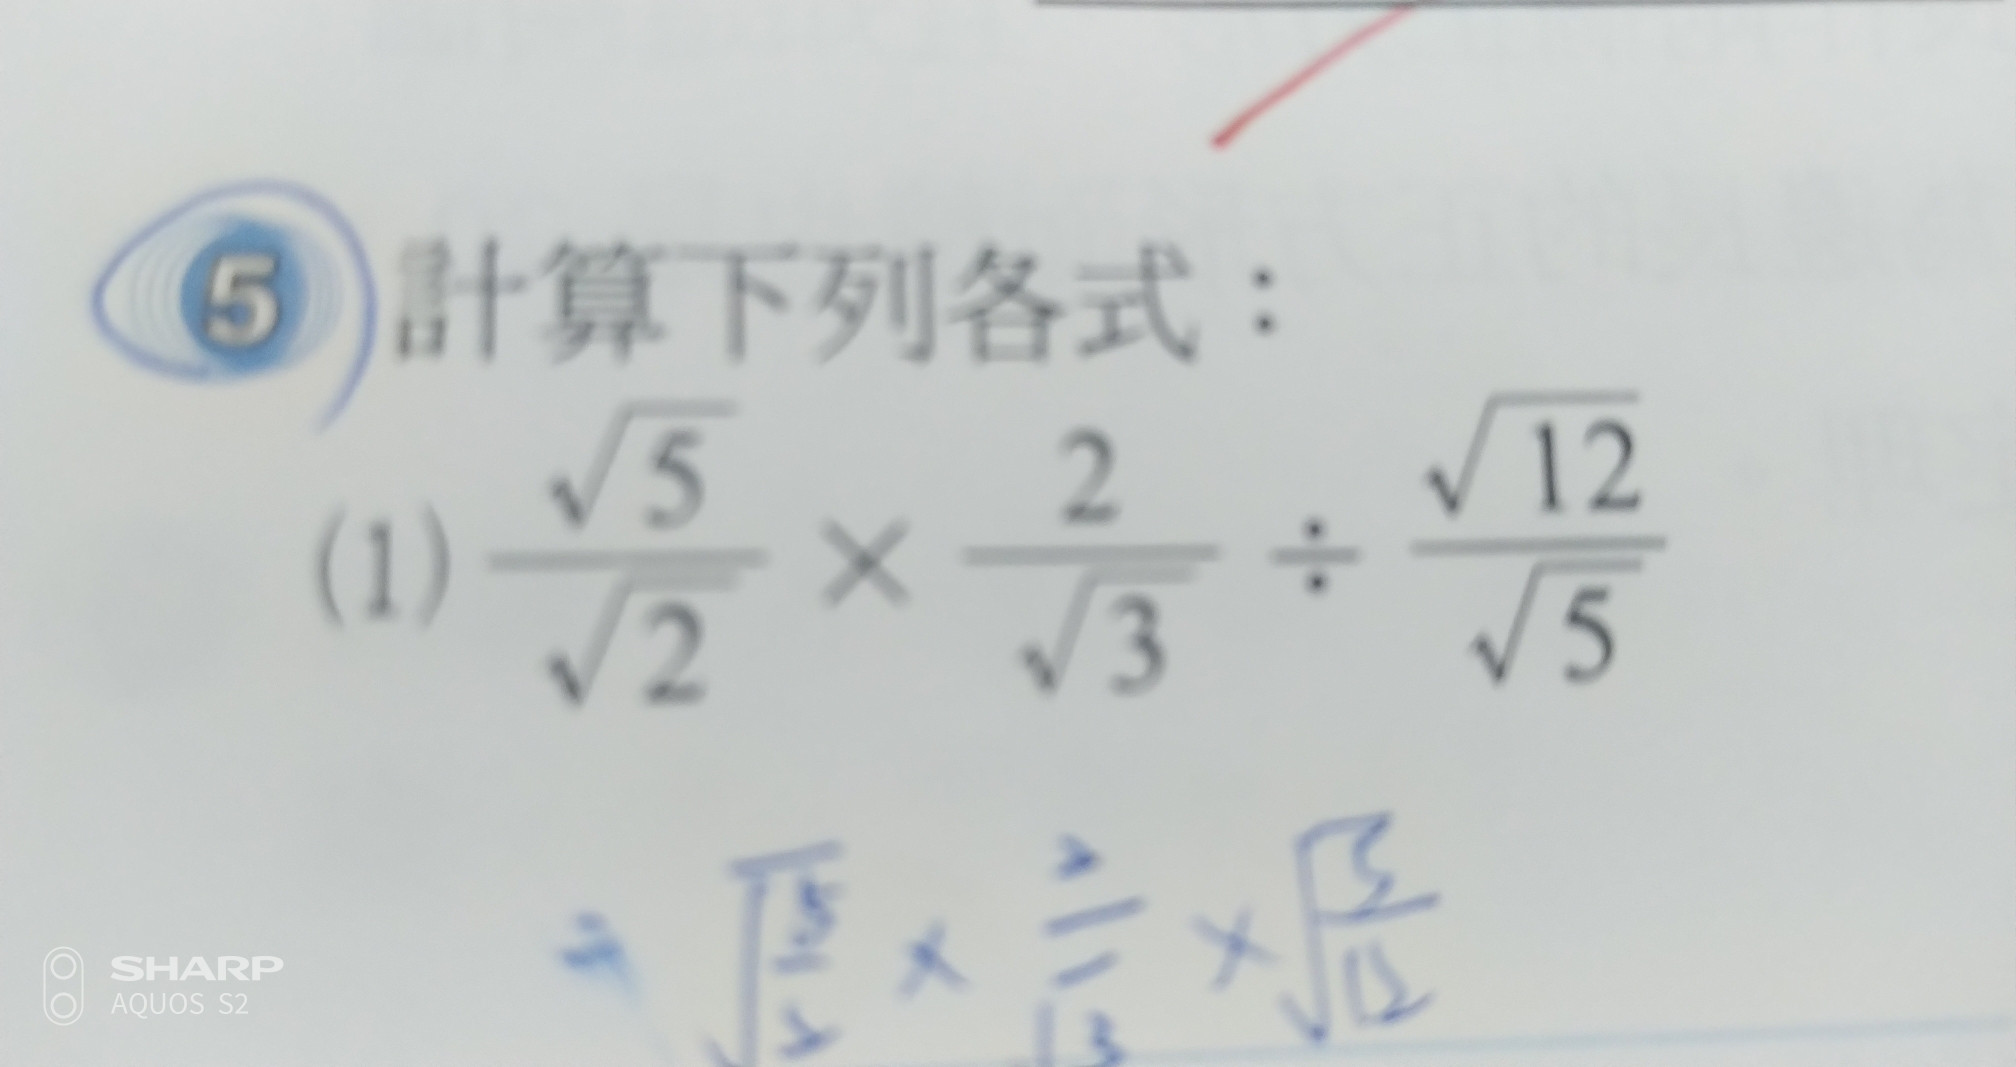 5 計算下列各式：
(1) √5/√2 × 2/√3 ÷ √12/√5
√5/2 × 2/√3 × √5/12
SHARP
AQUOS S2